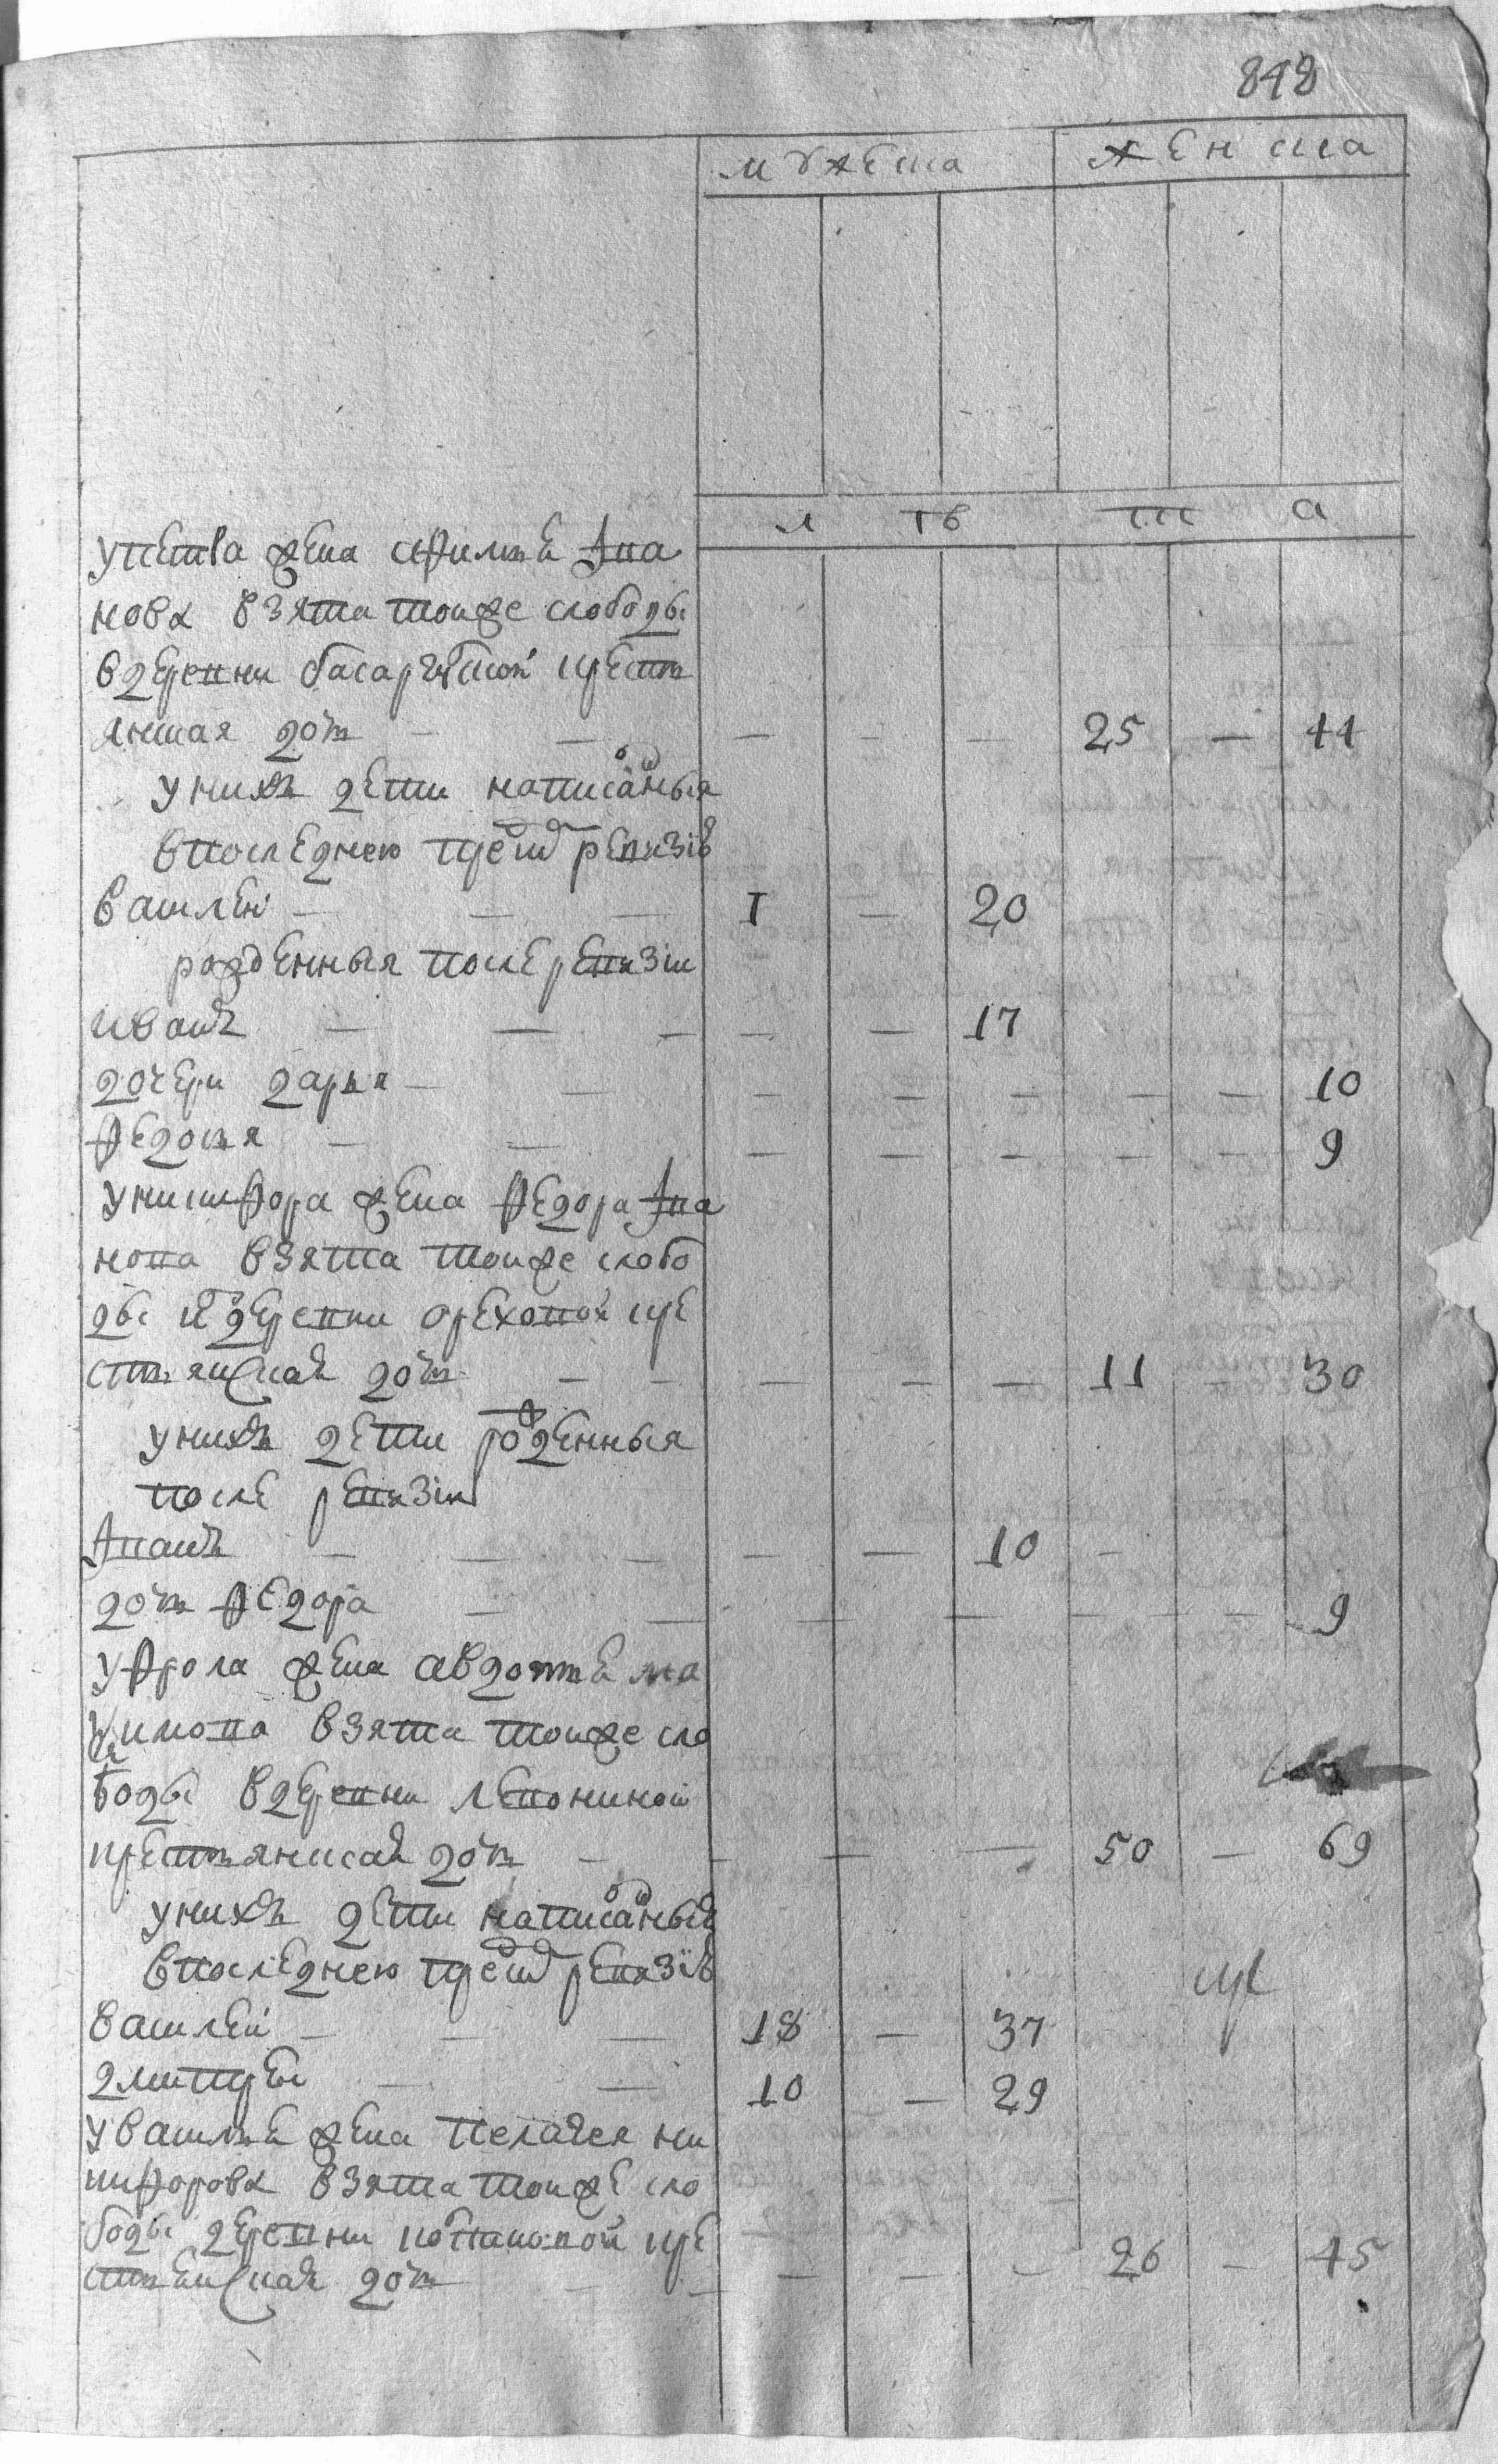 848
мужеска женска
лѣтъ а
у петра жена афимья Iва
нова взята тоиже слободы
в деревни басаргиской крестъ
янская дочь — — — — — 25 — 44
у нихъ дети написанныя
в последнею пред сим ревизiю
василей — — — 1 — 20
рожденныя после ревизiи
иванъ — — — — — 17
дочери дарья — — — — — — — 10
федосья — — — — — — — 9
у никифора жена федора Iва
нова взята тоиже слобо
ды из деревни ореховой кре
стьянская дочь — — — — — 11 — 30
у нихъ дети рожденныя
после ревизiи
Iванъ — — — — — 10 —
дочь федора — — — — — — — 9
у фрола жена авдотья ма
ѯимова взята тоиже сло
боды в деревни левониной
крестьянская дочь — — — — 50 — 69
у нихъ дети написанныя
в последнею пред сим ревизiю
василей — — — 18 — 37
дмитреи — — 10 — 29
у василья жена пелагея ни
кифорова взята тоиже сло
боды деревни кобановой кре
стьянская дочь — — — — — 26 — 45